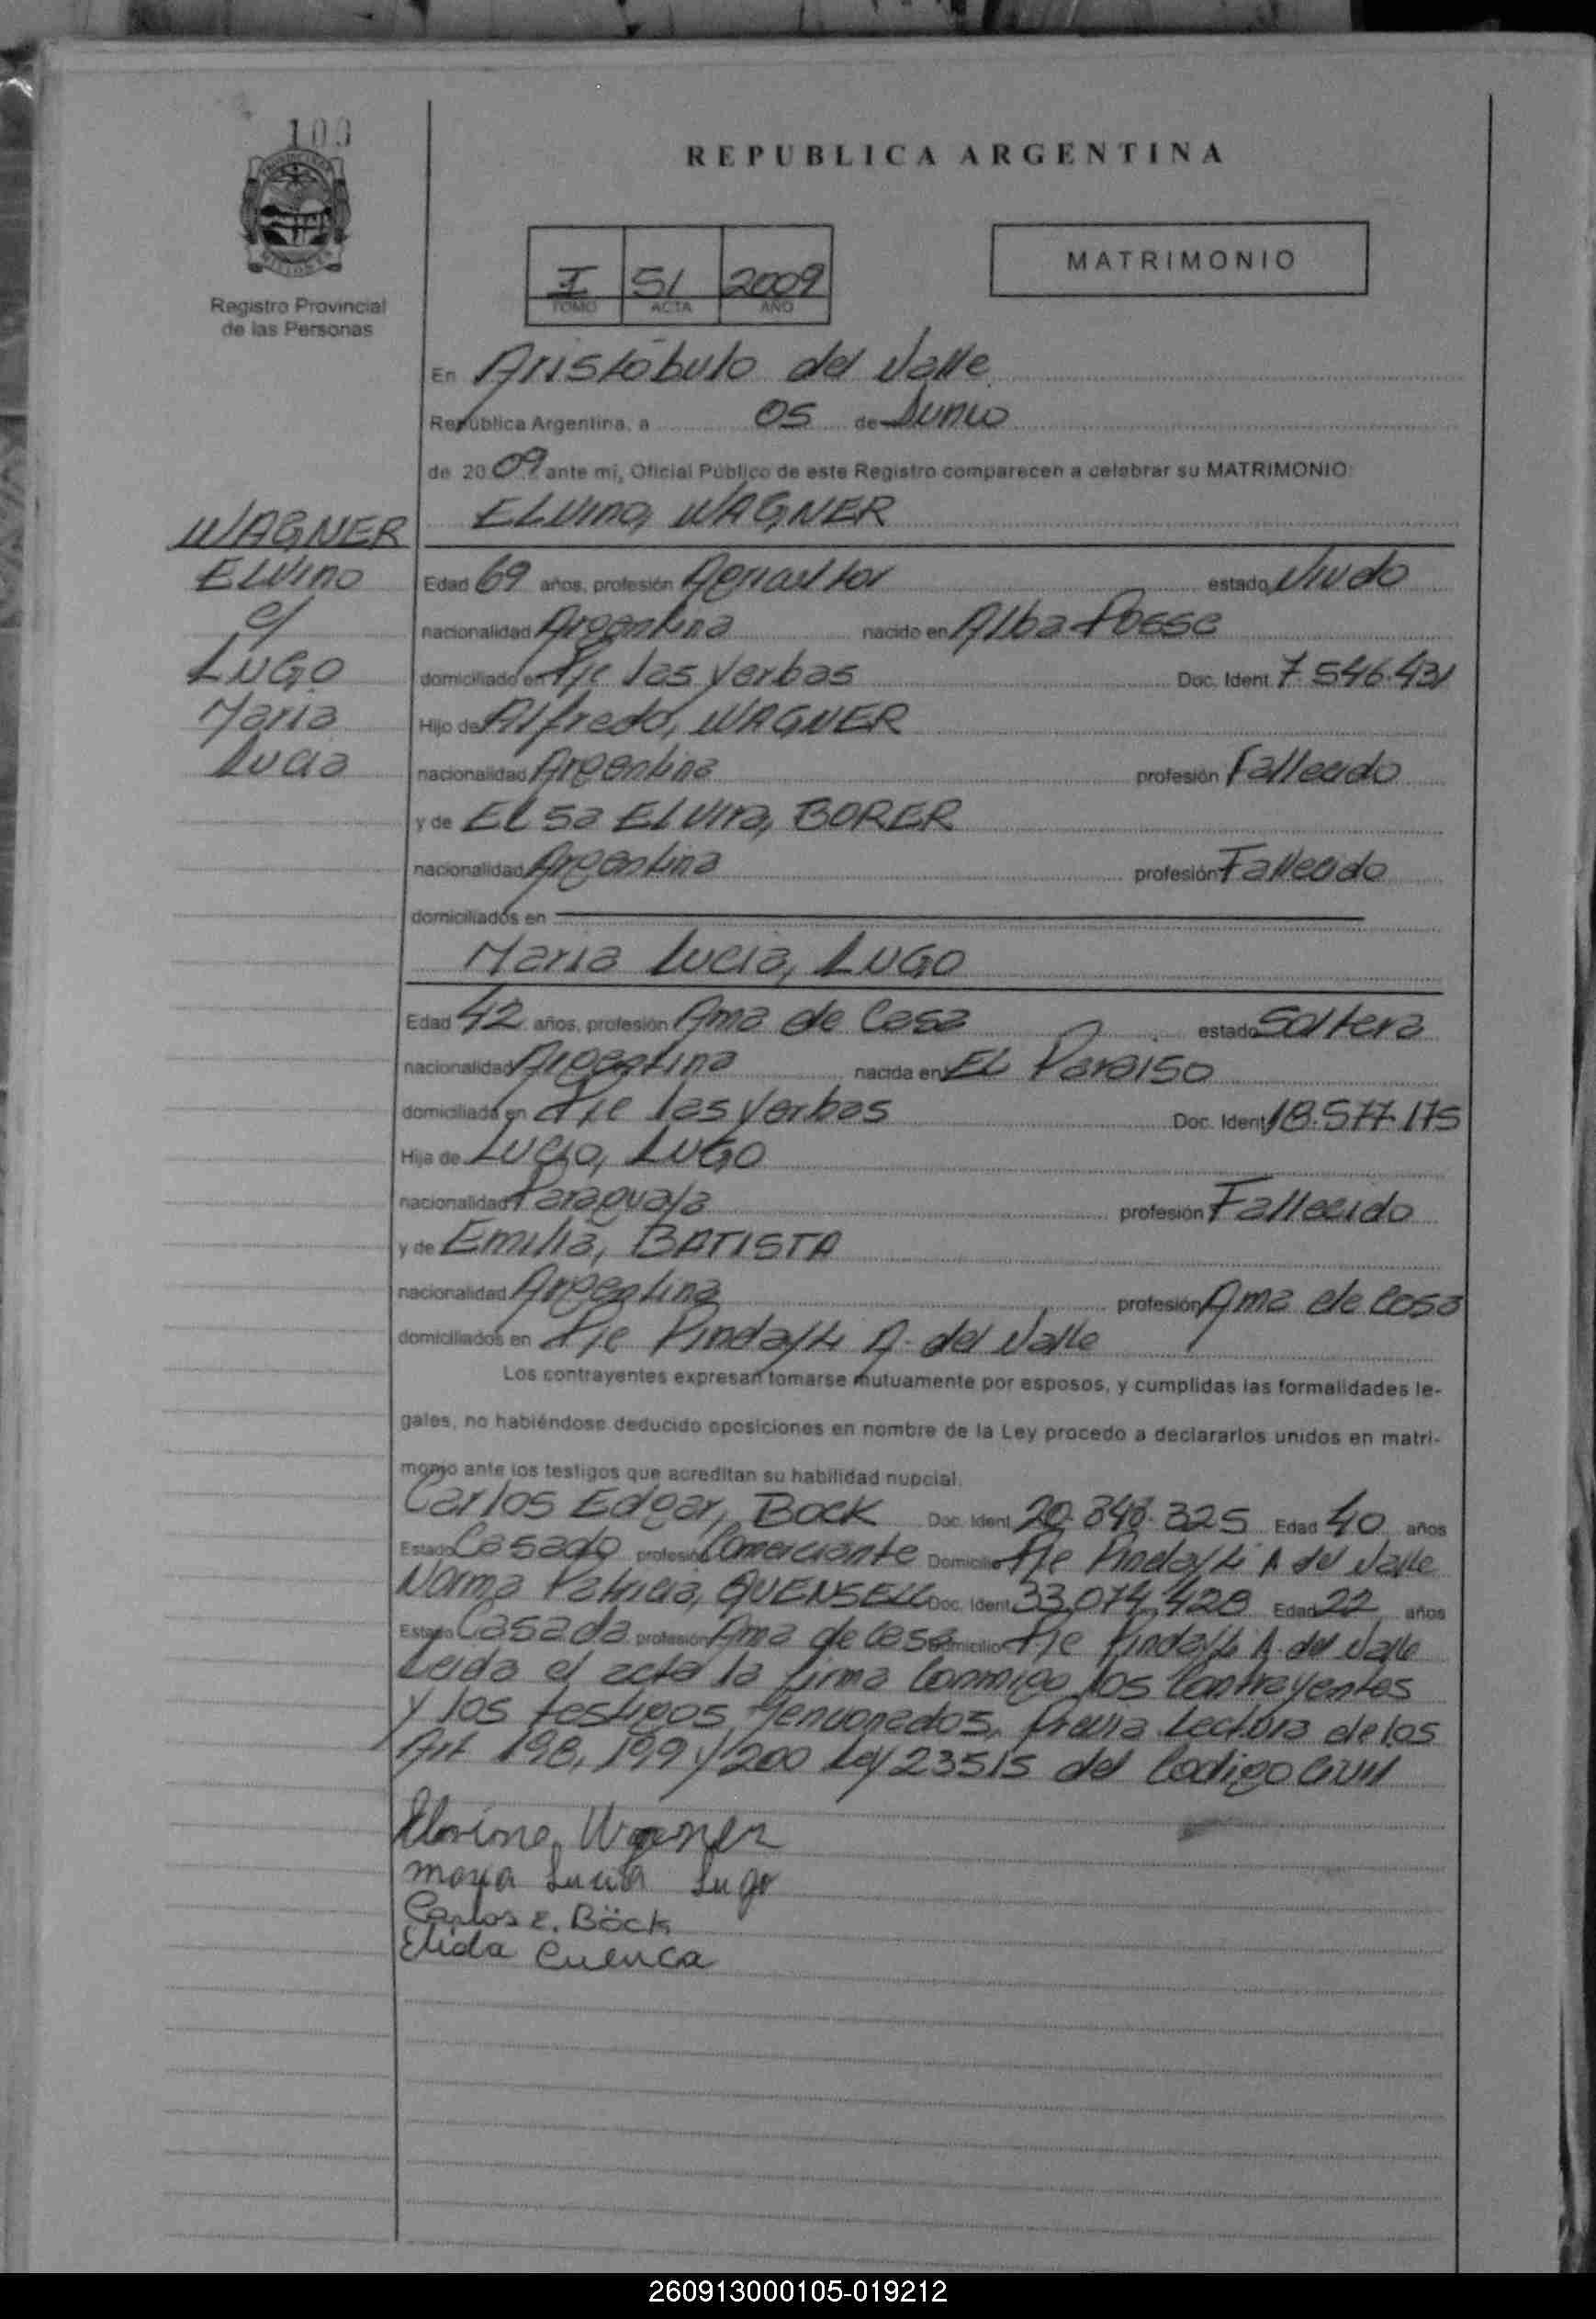 100
Registro Provincial
de las Personas
REPUBLICA ARGENTINA
I 51 2009
TOMO ACTA AÑO
MATRIMONIO
En Aristóbulo del Valle
República Argentina, a 05 de Junio
de 2009 ante mí, Oficial Público de este Registro comparecen a celebrar su MATRIMONIO:
ELvino, WAGNER
WAGNER
ELvino
c/
LUGO
Maria
Lucia
Edad 69 años, profesión Agricultor estado Viudo
nacionalidad Argentina nacido en Alba Posse
domiciliado en Pje las Yerbas Doc. Ident 7.546.431
Hijo de Alfredo, WAGNER
nacionalidad Argentina profesión Fallecido
y de ELsa ELvira, BORER
nacionalidad Argentina profesión Fallecido
domiciliados en
Maria Lucia, LUGO
Edad 42 años, profesión Ama de Casa estado Soltera
nacionalidad Argentina nacida en EL Paraiso
domiciliada en Pje las Yerbas Doc. Ident 18.577.175
Hija de Lucio, LUGO
nacionalidad Paraguaya profesión Fallecido
y de Emilia, BATISTA
nacionalidad Argentina profesión Ama de Casa
domiciliados en Pje Pindayti A. del Valle
Los contrayentes expresan tomarse mutuamente por esposos, y cumplidas las formalidades le-
gales, no habiéndose deducido oposiciones en nombre de la Ley procedo a declararlos unidos en matri-
monio ante los testigos que acreditan su habilidad nupcial.
Carlos Edgar, BOCK Doc. Ident. 20.848.325 Edad 40 años
Estado Casado profesión Comerciante Domicilio Pje Pindayti A del Valle
Norma Patricia, QUENSELL Doc. Ident. 33.074.428 Edad 22 años
Estado Casada profesión Ama de Casa Domicilio Pje Pindayti A. del Valle
Leida el acta la firma Conmigo los Contrayentes
y los testigos Mencionados, Previa Lectura de los
Art 198, 199 y 200 Ley 23515 del Codigo Civil
Elvino, Wagner
maria Lucia Lugo
Carlos E. Böck
Elida Cuenca
260913000105-019212